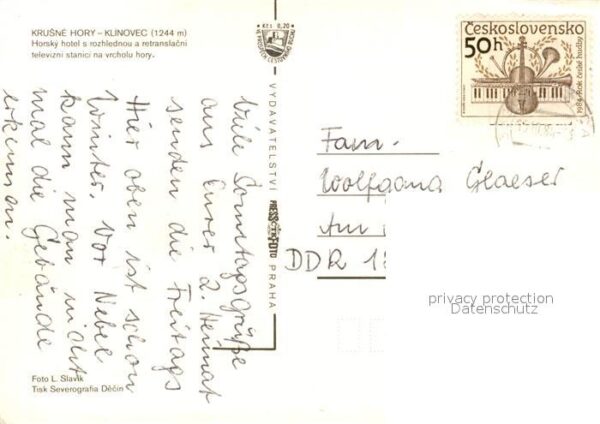 KRUŠNÉ HORY – KLINOVEC (1244 m)
Horský hotel s rozhlednou a retranslační
televizní stanicí na vrcholu hory.
Kčs 0,20
Československo
50h
1984-Rok české hudby
VYDAVATELSTVÍ PRESSFOTO PRAHA
Viele Sonntagsgrüße
aus Eurer 2. Heimat
senden die Freitags
Hier oben ist schon
Winter. Vor Nebel
kann man nicht
mal die Gebäude
erkennen.
Fam.
Wolfgang Glaeser
Am
DDR 18
privacy protection
Datenschutz
Foto L. Slavík
Tisk Severografia Děčín